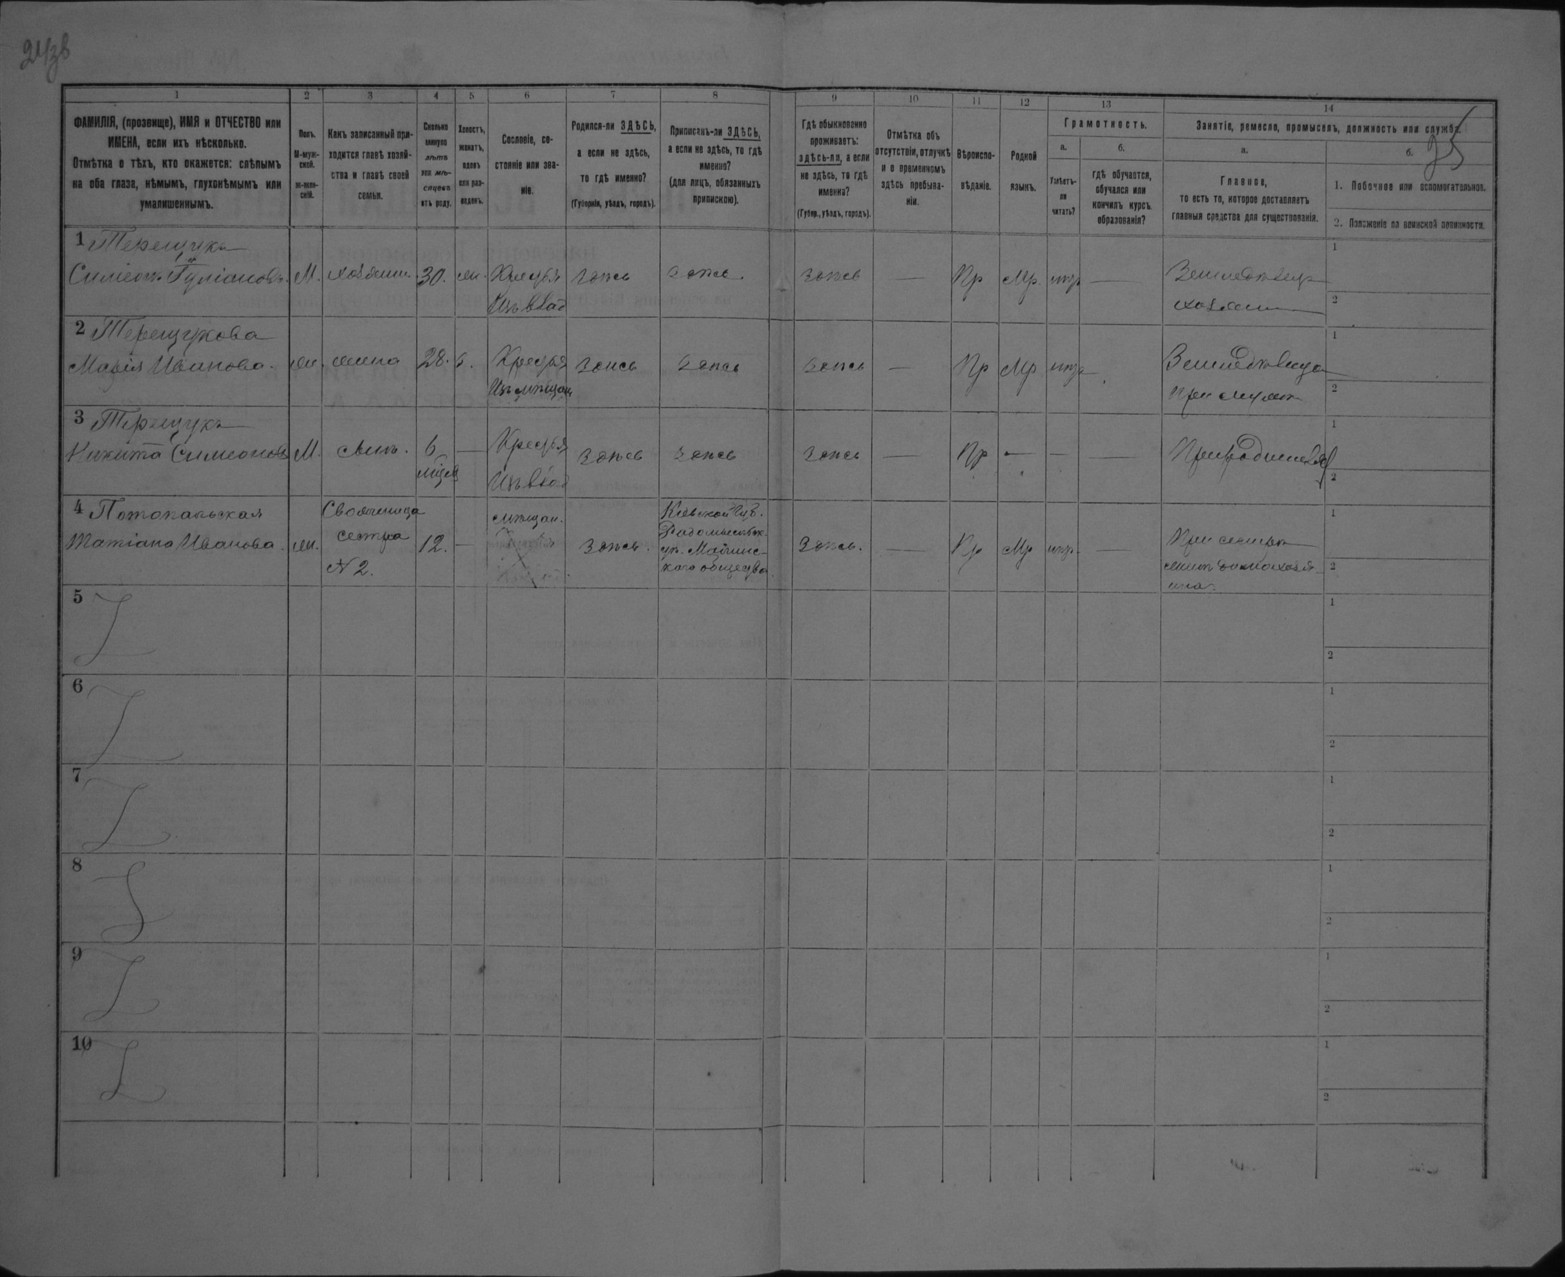 1 2 3 4 5 6 7 8 9 10 11 12 13 14
ФАМИЛІЯ, (прозвище), ИМЯ и ОТЧЕСТВО или
ИМЕНА, если ихъ нѣсколько.
Отмѣтка о тѣхъ, кто окажется: слѣпымъ
на оба глаза, нѣмымъ, глухонѣмымъ или
умалишеннымъ.
Полъ.
М-муж-
ской.
ж-жен-
скій.
Какъ записанный при-
ходится главѣ хозяй-
ства и главѣ своей
семьи.
Сколько
минуло
лѣтъ
или мѣ-
сяцевъ
отъ роду.
Холостъ,
женатъ,
вдовъ
или раз-
веденъ.
Сословіе, со-
стояніе или зва-
ніе.
Родился-ли ЗДѢСЬ,
а если не здѣсь,
то гдѣ именно?
(Губернія, уѣздъ, городъ).
Приписанъ-ли ЗДѢСЬ,
а если не здѣсь, то гдѣ
именно?
(для лицъ, обязанныхъ
припискою).
Гдѣ обыкновенно
проживаетъ:
здѣсь-ли, а если
не здѣсь, то гдѣ
именно?
(Губер., уѣздъ, городъ).
Отмѣтка объ
отсутствіи, отлучкѣ
и о временномъ
здѣсь пребыва-
ніи.
Вѣроиспо-
вѣданіе.
Родной
языкъ.
Грамотность.
а.
Умѣетъ-
ли
читать?
б.
гдѣ обучается,
обучался или
кончилъ курсъ
образованія?
Занятіе, ремесло, промыселъ, должность или служба.
а.
Главное,
то есть то, которое доставляетъ
главныя средства для существованія.
б.
1. Побочное или вспомогательное.
2. Положеніе по воинской повинности.
1 Терещукъ
Симеонъ М. хозяинъ 30. ж. Крестья здѣсь здѣсь. здѣсь — Пр Мр нѣтъ — Земледѣлецъ 1
Изъ влад хозяинъ 2
2 Терещукова
Марія Иванова. ж. жена 28. з. Крестья здѣсь здѣсь здѣсь — Пр Мр нѣтъ Земледѣлица 1
Изъ мѣщан при мужѣ 2
3 Терещукъ
Никита Симеоновъ М. сынъ. 6 — Крестья здѣсь здѣсь здѣсь — Пр — — — При родителяхъ 1
Изъ влад 2
4 Потопальская Свояченица мѣщан. Кіевской Губ.
Татіана Иванова. ж. сестра 12. — здѣсь. Радомысльск. здѣсь. — Пр Мр нѣтъ — При семьѣ 1
N 2. уѣ. 2
каго общества
5 1
2
6 1
2
7 1
2
8 1
2
9 1
2
10 1
2